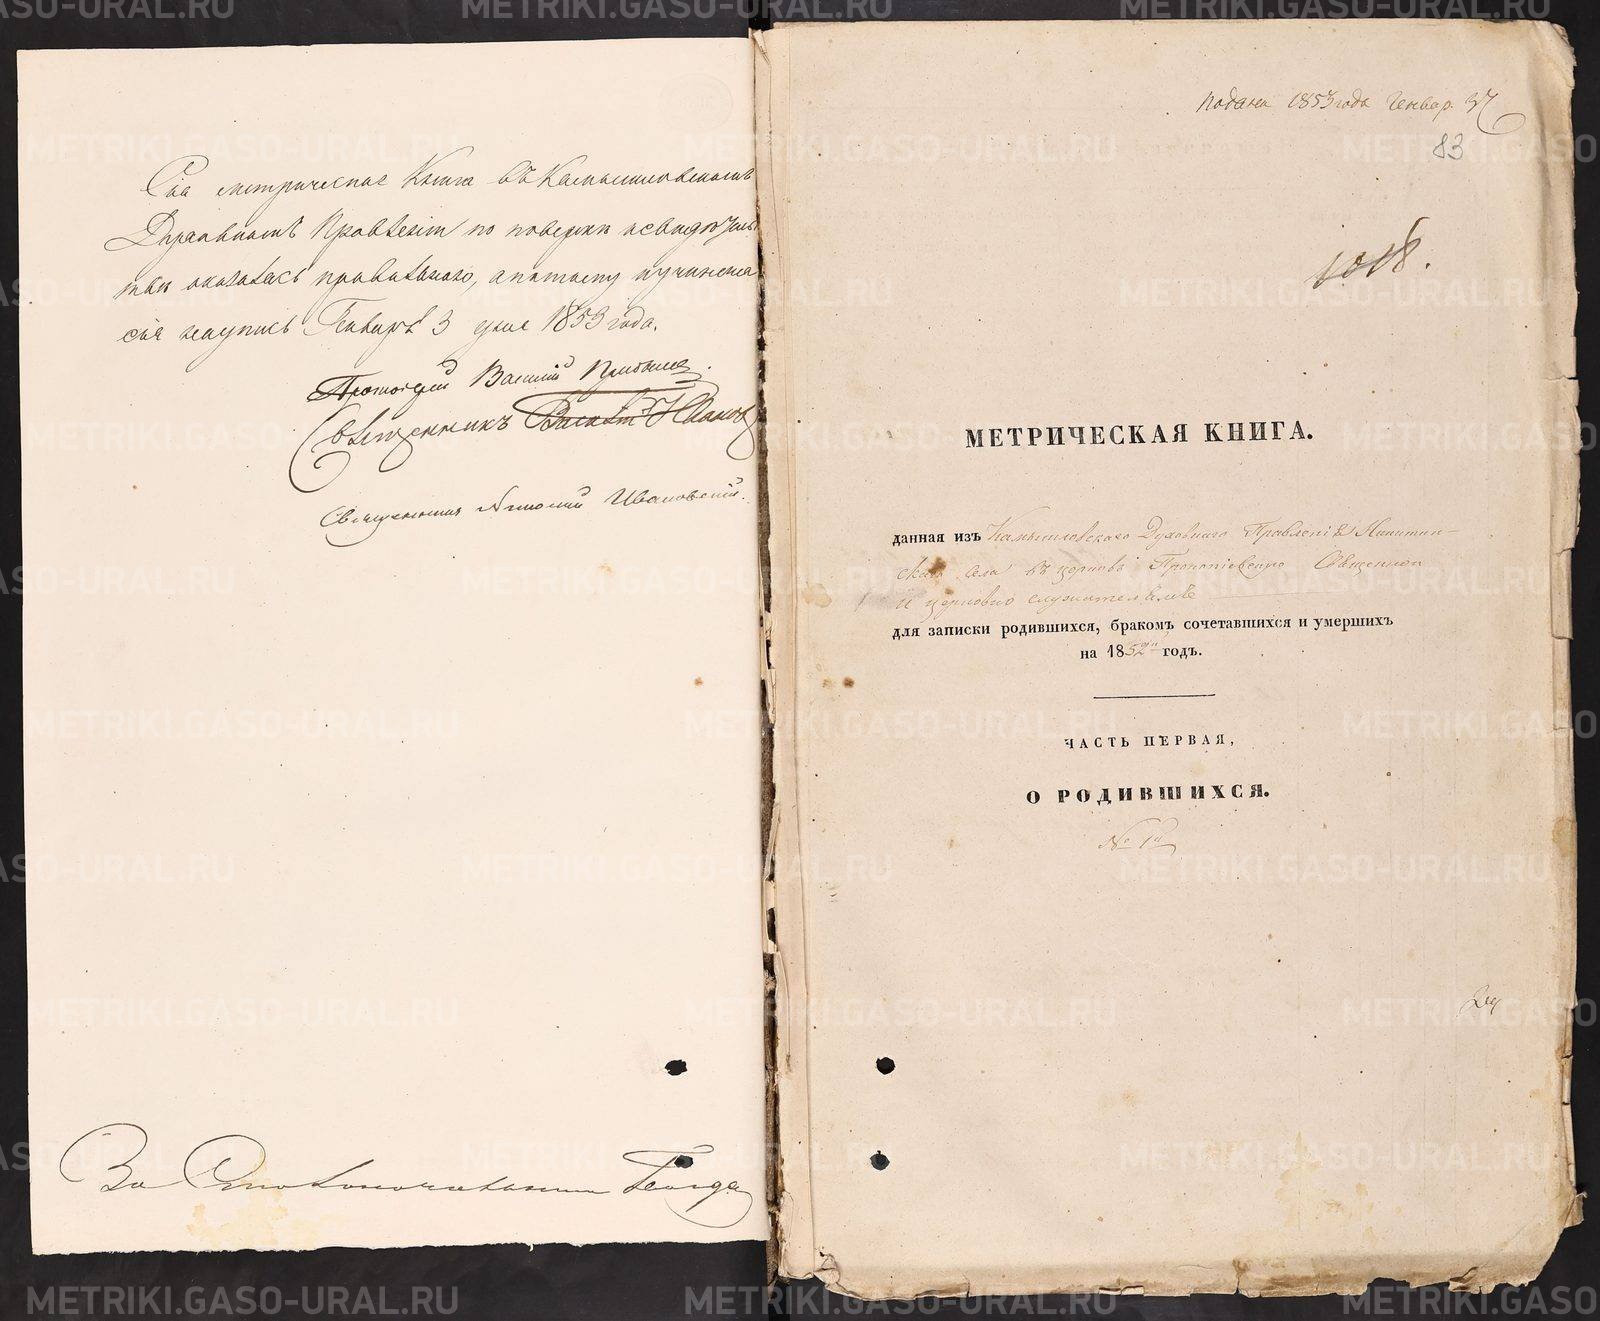 Сія метрическая Книга въ Камышловскомъ
Духовномъ Правленіи по поверки и свидѣтель
тви оказалась правильною, а потому и учинена
сія надпись Генваря 3 дня 1853 года.
Протоіерей Василій
Священникъ Иванов
Священникъ Ивановскій.
За Столоначальника
подана 1853 года Генвар.
83
1018.
МЕТРИЧЕСКАЯ КНИГА.
данная изъ Камышловскаго Духовнаго Правленія Никитин-
скаго села въ церковь Прокопіевскую Священно
и церковно служителямъ
для записки родившихся, бракомъ сочетавшихся и умершихъ
на 1852й годъ.
ЧАСТЬ ПЕРВАЯ,
О РОДИВШИХСЯ.
№ 1й
METRIKI.GASO-URAL.RU